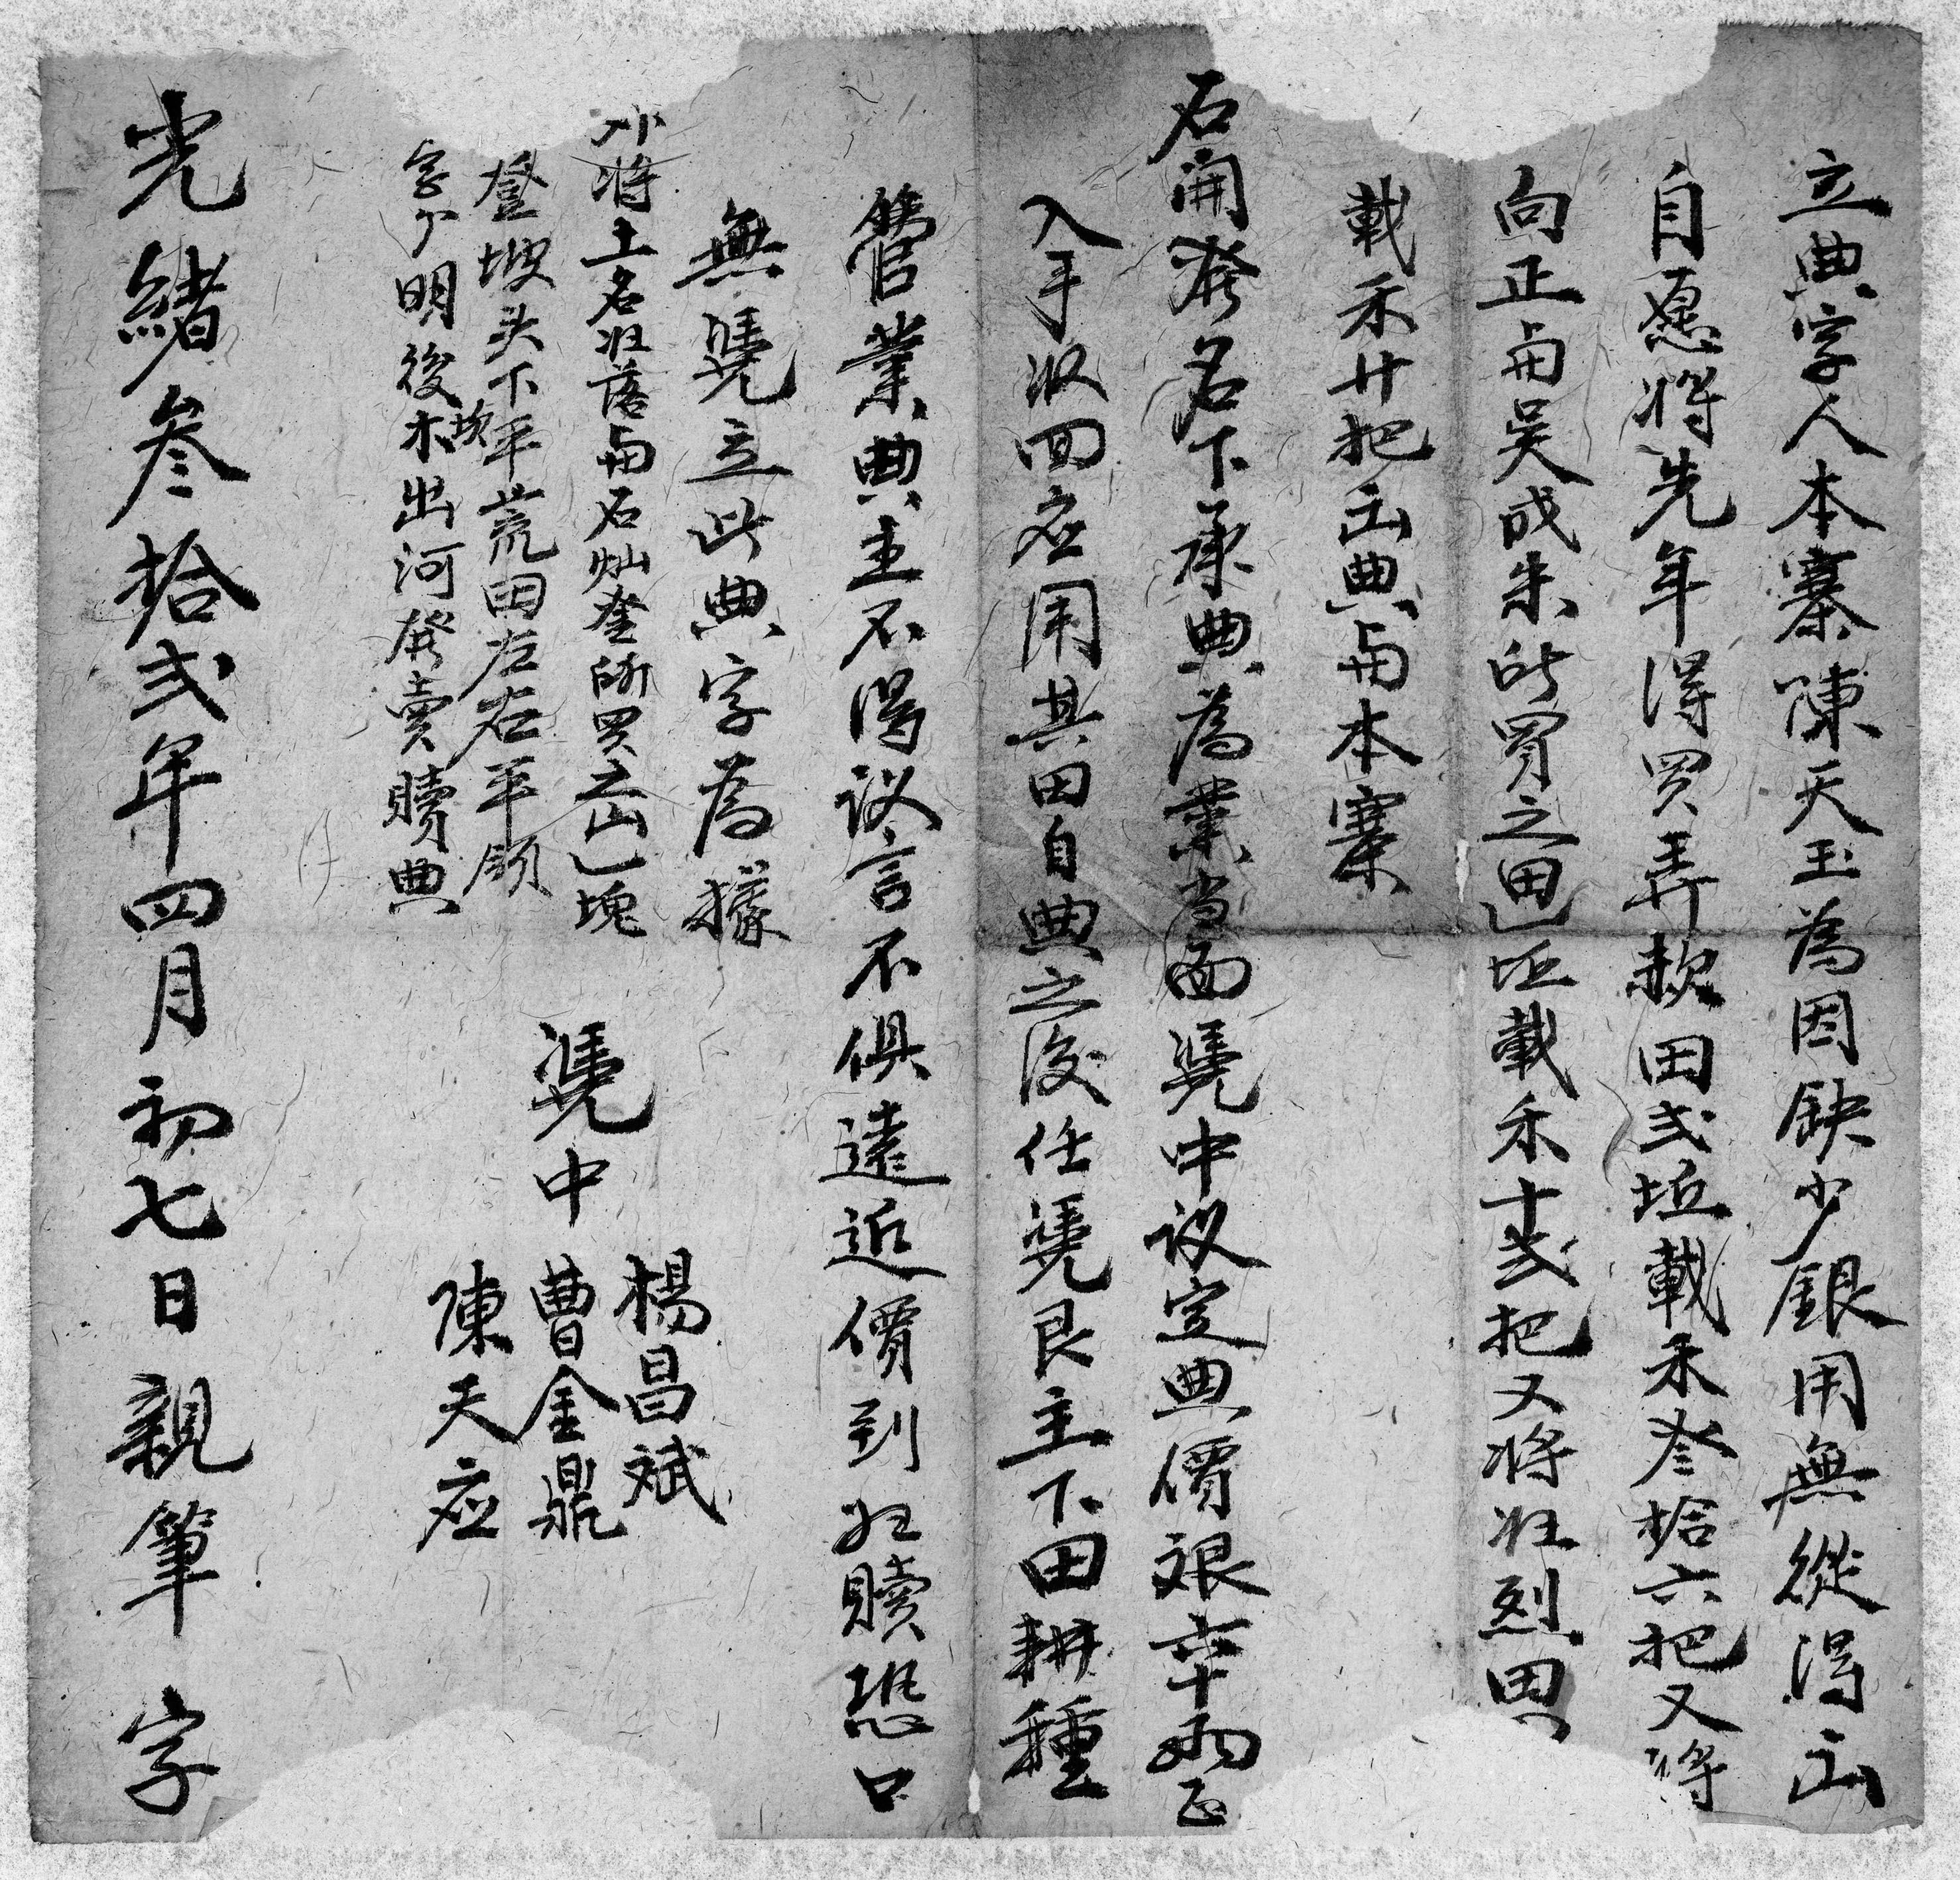 立典字人本寨陳天玉為因缺少銀用無從得出
自愿將先年得買弄欵田弍坵載禾叁拾六把又將
向正与吴成朱所買之田一坵載禾十弍把又將壯烈田
載禾廿把出典与本寨
石開發名下承典為業当面凴中议定典價銀六十两正
入手收回应用其田自典之後任凴艮主下田耕種
管業典主不得议言不俱遠近價到归贖恐口
無凴立此典字為據
外將土名壯落与石灿奎所買之山一塊
登坡头下坎平荒田左右平领
字下明後木出河發賣贖典
凴中
楊昌斌
曹金鼎
陳天应
光緒叁拾弍年四月初七日親筆 字